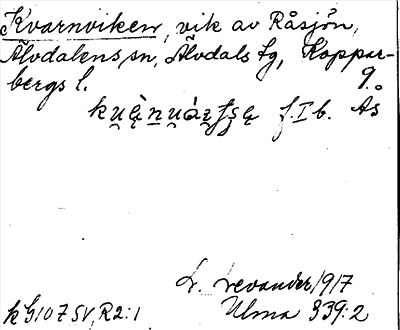 Kvarnviken, vik av Råsjön,
Älvdalens sn, Älvdals tg, Koppar-
bergs l.
f. I b. Ås
L. Levander 1917
k G107 SV, R2:1 Ulma 339:2